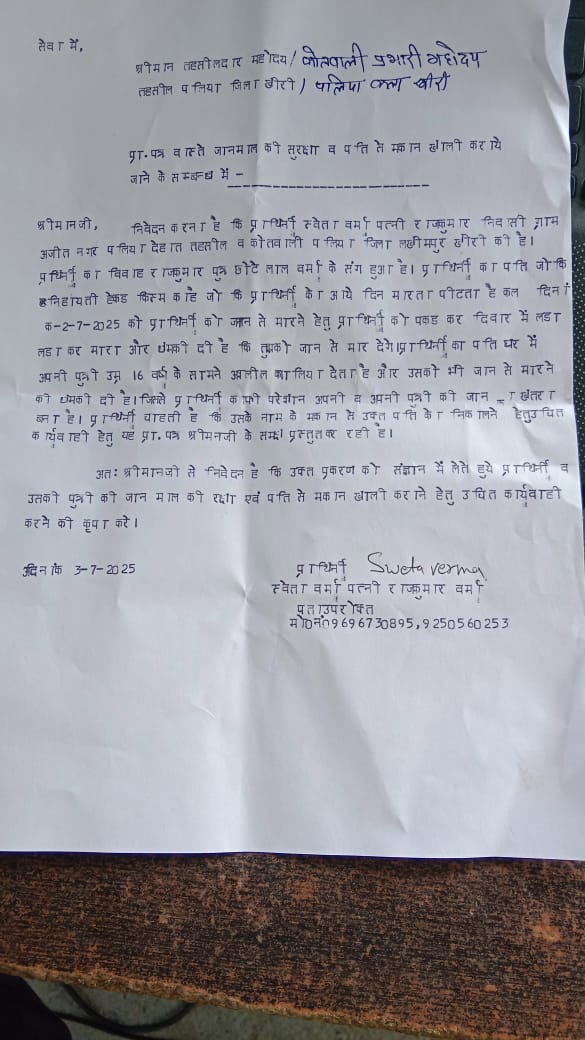 सेवा में,
श्रीमान तहसीलदार महोदय/ कोतवाली प्रभारी महोदय
तहसील पलिया जिला खीरी/ पलिया कला खीरी
प्रा.पत्र वास्ते जानमाल की सुरक्षा व पति से मकान खाली कराये
जाने के सम्बन्ध में -
श्रीमानजी, निवेदन करना है कि प्रार्थिनी स्वेता वर्मा पत्नी राजकुमार निवासी ग्राम
अजीत नगर पलिया देहात तहसील व कोतवाली पलिया जिला लखीमपुर खीरी की है।
प्रार्थिनी का विवाह राजकुमार पुत्र छोटे लाल वर्मा के संग हुआ है। प्रार्थिनी का पति जो कि
निहायती हेकड किस्म का है जो कि प्रार्थिनी को आये दिन मारता पीटता है कल दिनां
क-2-7-2025 को प्रार्थिनी को जान से मारने हेतु प्रार्थिनी को पकड कर दिवार में लडा
लडा कर मारा और धमकी दी है कि तुमको जान से मार देंगे।प्रार्थिनी का पति घर में
अपनी पुत्री उम्र 16 वर्ष के सामने अश्लील गालिया देता है और उसको भी जान से मारने
की धमकी दी है।जिससे प्रार्थिनी काफी परेशान अपनी व अपनी पुत्री की जान का खतरा
बना है। प्रार्थिनी चाहती है कि उसके नाम के मकान से उक्त पति को निकालने हेतुउचित
कार्यवाही हेतु यह प्रा.पत्र श्रीमानजी के समक्ष प्रस्तुतकर रही है।
अतः श्रीमानजी से निवेदन है कि उक्त प्रकरण को संज्ञान में लेते हुये प्रार्थिनी व
उसकी पुत्री की जान माल की रक्षा एवं पति से मकान खाली कराने हेतु उचित कार्यवाही
करने की कृपा करे।
दिनांक 3-7-2025
प्रार्थिनी Sweta verma
स्वेता वर्मा पत्नी राजकुमार वर्मा
पताउपरोक्त
मो0नं09696730895,9250560253